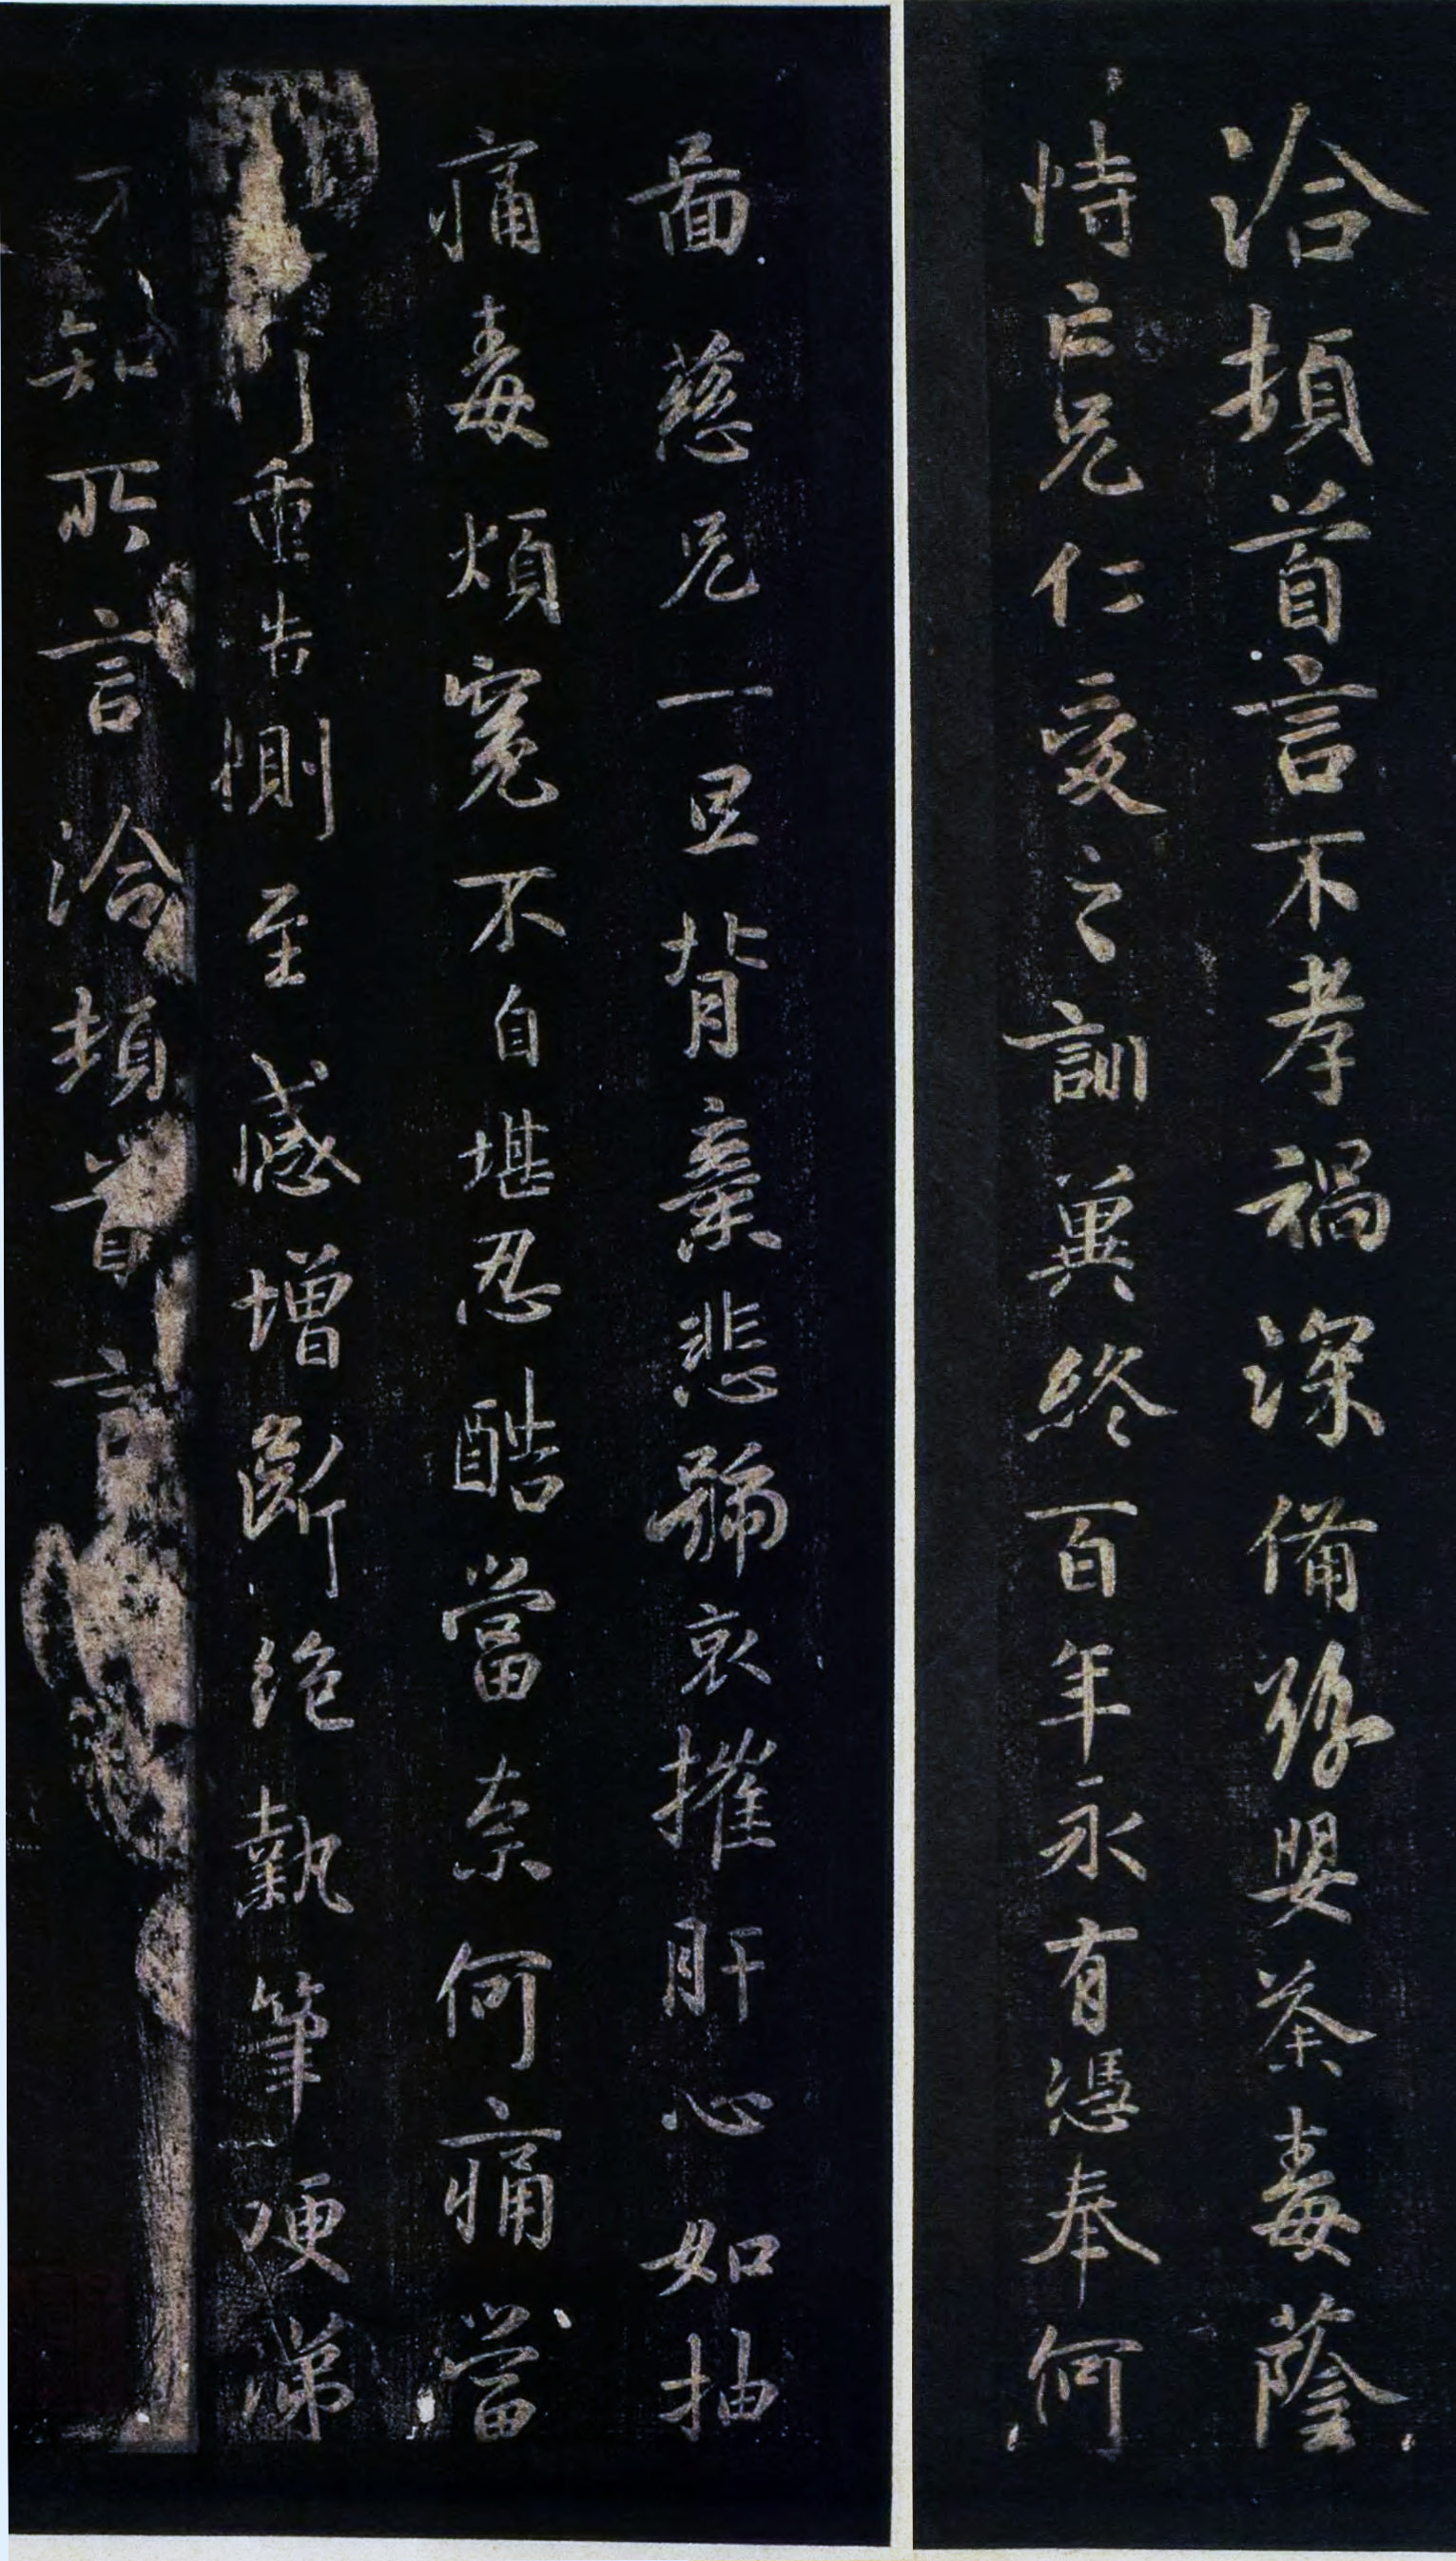 洽頓首言不孝禍深備豫嬰荼毒蔭
恃亡兄仁愛之訓冀終百年永有憑奉何
啚慈兄一旦背棄悲號哀摧肝心如抽
痛毒煩冤不自堪忍酷當奈何痛當
重告惻至感增斷絕執筆哽涕
不知所言洽頓首言